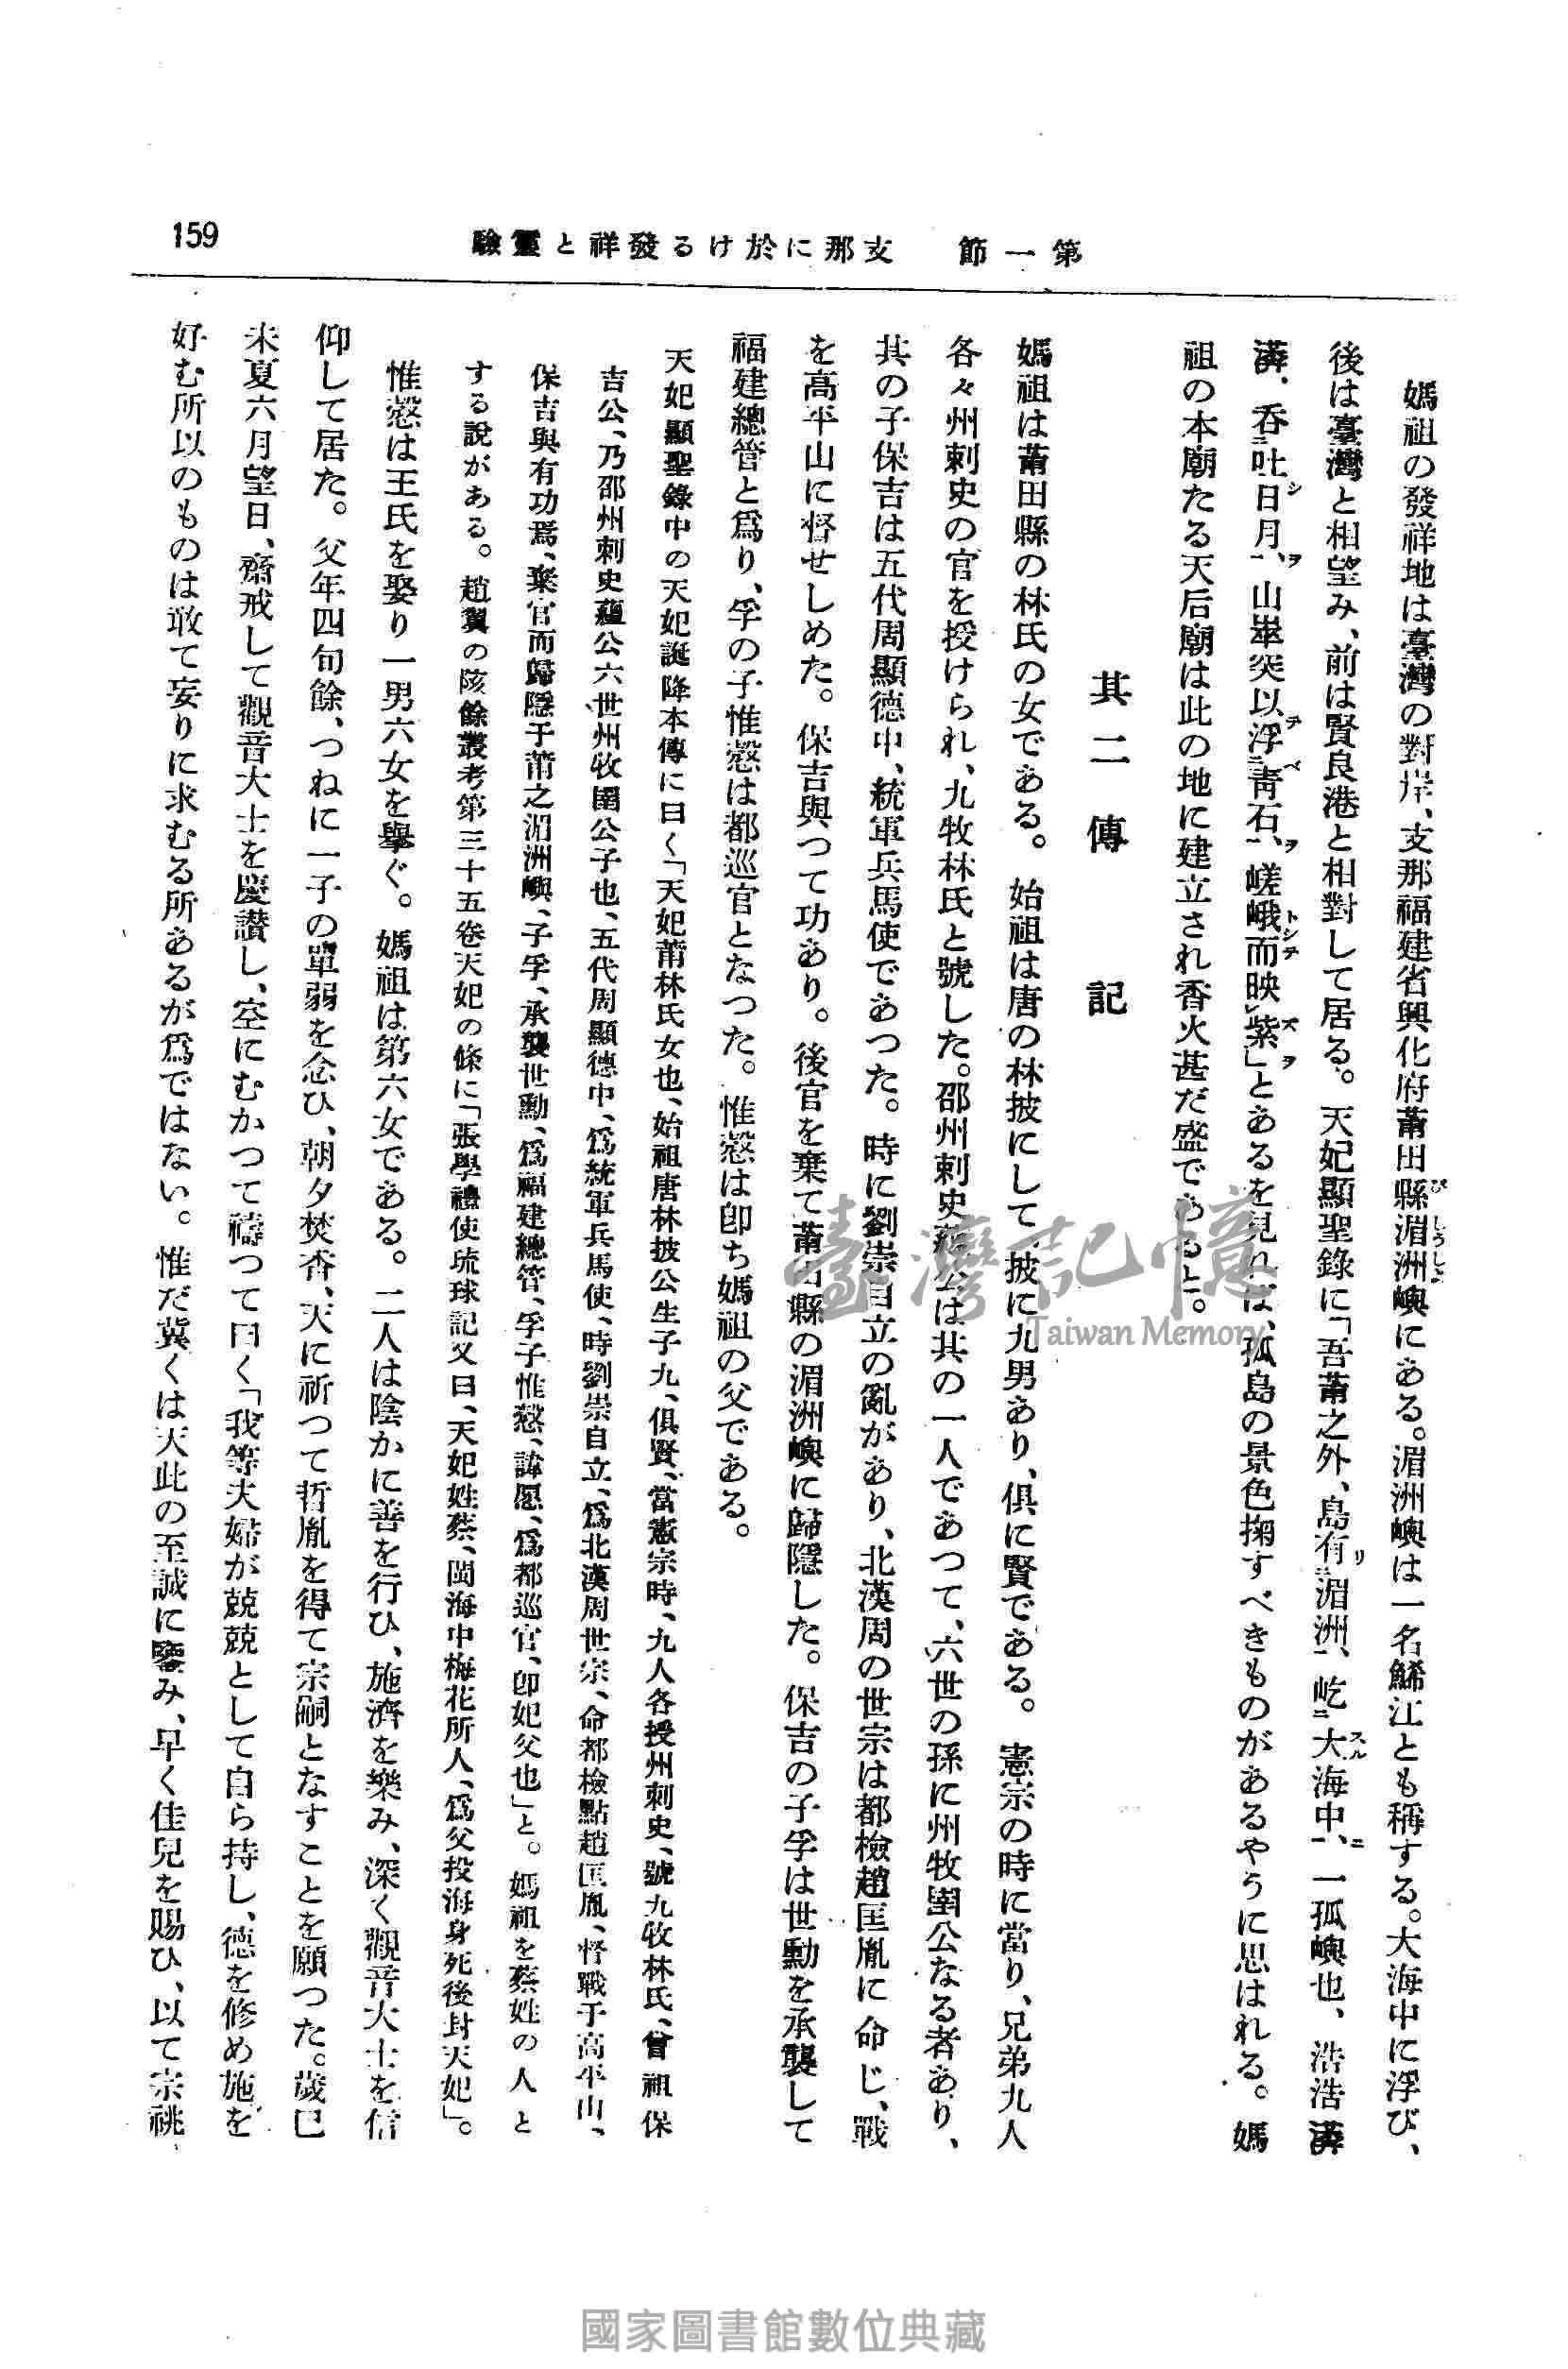 159
第一節　支那に於ける發祥と靈驗
媽祖の發祥地は臺灣の對岸、支那福建省興化府莆田縣湄洲嶼にある。湄洲嶼は一名鯑江とも稱する。大海中に浮び、
後は臺灣と相望み、前は賢良港と相對して居る。天妃顯聖錄に「吾莆之外、島有湄洲、屹大海中、一孤嶼也、浩浩漭
漭、呑吐日月、山崒突以浮靑石、嵯峨而映紫」とあるを見れば、孤島の景色掬すべきものがあるやうに思はれる。媽
祖の本廟たる天后廟は此の地に建立され香火甚だ盛であると。
其二　傳記
媽祖は莆田縣の林氏の女である。始祖は唐の林披にして、披に九男あり、俱に賢である。憲宗の時に當り、兄弟九人
各々州刺史の官を授けられ、九牧林氏と號した。邵州刺史蘊公は其の一人であつて、六世の孫に州牧圉公なる者あり、
其の子保吉は五代周顯德中、統軍兵馬使であつた。時に劉崇自立の亂があり、北漢周の世宗は都檢趙匡胤に命じ、戰
を高平山に督せしめた。保吉與つて功あり。後官を棄て莆田縣の湄洲嶼に歸隱した。保吉の子孚は世勳を承襲して
福建總管と爲り、孚の子惟慤は都巡官となつた。惟慤は卽ち媽祖の父である。
天妃顯聖錄中の天妃誕降本傳に曰く「天妃莆林氏女也、始祖唐林披公生子九、俱賢、當憲宗時、九人各授州刺史、號九牧林氏、曾祖保
吉公、乃邵州刺史蘊公六世州牧圉公子也、五代周顯德中、爲統軍兵馬使、時劉崇自立、爲北漢周世宗、命都檢點趙匡胤、督戰于高平山、
保吉與有功焉、棄官而歸隱于莆之湄洲嶼、子孚、承襲世勳、爲福建總管、孚子惟慤、諱愿、爲都巡官、卽妃父也」と。媽祖を蔡姓の人と
する說がある。趙翼の陔餘叢考第三十五卷天妃の條に「張學禮使琉球記又曰、天妃姓蔡、閩海中梅花所人、爲父投海身死後封天妃」。
惟慤は王氏を娶り一男六女を擧ぐ。媽祖は第六女である。二人は陰かに善を行ひ、施濟を樂み、深く觀音大士を信
仰して居た。父年四旬餘、つねに一子の單弱を念ひ、朝夕焚香、天に祈つて哲胤を得て宗嗣となすことを願つた。歲己
未夏六月望日、齋戒して觀音大士を慶讃し、空にむかつて禱つて曰く「我等夫婦が兢兢として自ら持し、德を修め施を
好む所以のものは敢て妄りに求むる所あるが爲ではない。惟だ冀くは天此の至誠に鑒み、早く佳兒を賜ひ、以て宗祧
臺灣記憶
Taiwan Memory
國家圖書館數位典藏